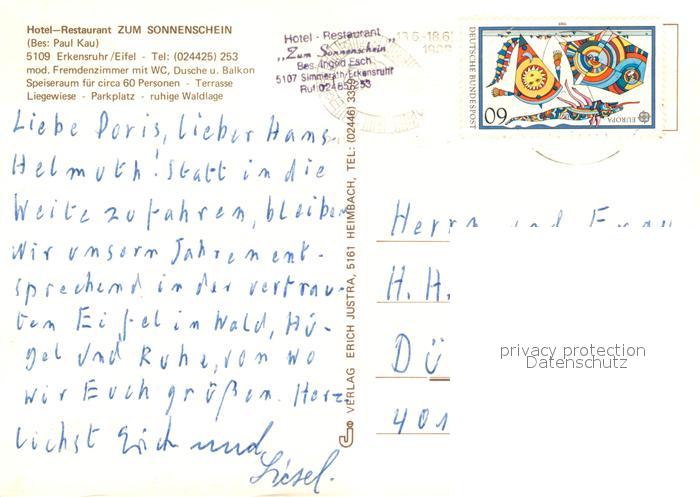 Hotel-Restaurant ZUM SONNENSCHEIN
(Bes: Paul Kau)
5109 Erkensruhr/Eifel - Tel: (024425) 253
mod. Fremdenzimmer mit WC, Dusche u. Balkon
Speiseraum für circa 60 Personen - Terrasse
Liegewiese - Parkplatz - ruhige Waldlage
Hotel - Restaurant
„Zum Sonnenschein"
Bes. Ingrid Esch
5107 Simmerath/Erkensruhr
DEUTSCHE BUNDESPOST
60
EUROPA
Liebe Doris, lieber Hans-
Helmuth! Statt in die
Weite zu fahren, bleiben
wir unsern Jahren ent-
sprechend in der vertrau-
ten Eifel in Wald, Hü-
gel und Ruhe, von wo
wir Euch grüßen. Herz-
lichst Erich und
Liesel.
VERLAG ERICH JUSTRA, 5161 HEIMBACH, TEL: (02446) 33
Herrn und Frau
H. H.
Dü
401
privacy protection
Datenschutz